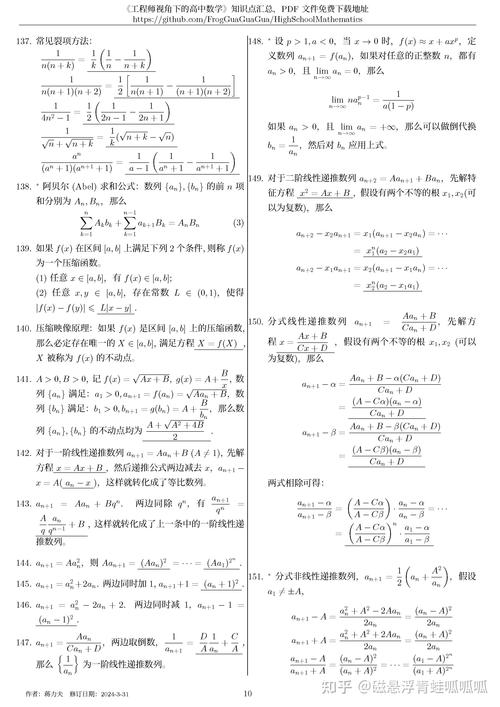 《工程师视角下的高中数学》知识点汇总，PDF 文件免费下载地址
https://github.com/FrogGuaGuaGuaGua/HighSchoolMathematics
137. 常见裂项方法:
1/(n(n+k)) = (1/k)(1/n − 1/(n+k))
1/(n(n+1)(n+2)) = (1/2)[1/(n(n+1)) − 1/((n+1)(n+2))]
1/(4n²−1) = (1/2)(1/(2n−1) − 1/(2n+1))
1/(√n+√(n+k)) = (1/k)(√(n+k) − √n)
aⁿ/((aⁿ+1)(aⁿ⁺¹+1)) = (1/(a−1))(1/(aⁿ+1) − 1/(aⁿ⁺¹+1))
138. * 阿贝尔 (Abel) 求和公式: 数列 {aₙ},{bₙ} 的前 n 项
和分别为 Aₙ,Bₙ，那么
∑_{k=1}^{n} A_k b_k + ∑_{k=1}^{n−1} a_{k+1}B_k = AₙBₙ (3)
139. 如果 f(x) 在区间 [a,b] 上满足下列 2 个条件,则称 f(x)
为一个压缩函数。
(1) 任意 x ∈ [a,b]，有 f(x) ∈ [a,b];
(2) 任意 x,y ∈ [a,b]，存在常数 L ∈ (0,1)，使得
|f(x) − f(y)| ⩽ L|x − y| .
140. 压缩映像原理: 如果 f(x) 是区间 [a,b] 上的压缩函数，
那么必定存在唯一的 X ∈ [a,b],满足方程 X = f(X) ，
X 被称为 f(x) 的不动点。
141. A > 0, B > 0，记 f(x) = √(Ax+B), g(x) = A + B/x，数
列 {aₙ} 满足: a₁ > 0, aₙ₊₁ = f(aₙ) = √(Aaₙ+B)，数
列 {bₙ} 满足: b₁ > 0, bₙ₊₁ = g(bₙ) = A + B/bₙ，那么数
列 {aₙ},{bₙ} 的不动点均为 (A+√(A²+4B))/2 .
142. 对于一阶线性递推数列 aₙ₊₁ = Aaₙ+B (A ≠ 1)，先解
方程 x = Ax + B ，然后递推公式两边减去 x，aₙ₊₁ −
x = A( aₙ − x )，这样就转化成了等比数列。
143. aₙ₊₁ = Aaₙ + Bqⁿ. 两边同除 qⁿ，有 aₙ₊₁/qⁿ =
(A/q)(aₙ/qⁿ⁻¹) + B ，这样就转化成了上一条中的一阶线性递
推数列。
144. aₙ₊₁ = Aaₙ²，则 Aaₙ₊₁ = (Aaₙ)² = ··· = (Aa₁)^(2ⁿ) .
145. aₙ₊₁ = aₙ² + 2aₙ. 两边同时加 1, aₙ₊₁ + 1 = (aₙ + 1)² .
146. aₙ₊₁ = aₙ² − 2aₙ + 2. 两边同时减 1, aₙ₊₁ − 1 =
(aₙ − 1)² .
147. aₙ₊₁ = Aaₙ/(Caₙ + D)，两边取倒数，1/aₙ₊₁ = (D/A)(1/aₙ) + C/A ，
那么 {1/aₙ} 为一阶线性递推数列。
148. * 设 p > 1, a < 0，当 x → 0 时，f(x) ≈ x + axᵖ，定
义数列 aₙ₊₁ = f(aₙ)，如果对任意的正整数 n，都有
aₙ > 0，且 lim_{n→∞} aₙ = 0，那么
lim_{n→∞} naₙᵖ⁻¹ = 1/(a(1 − p))
如果 aₙ > 0，且 lim_{n→∞} aₙ = +∞，那么可以做倒代换
bₙ = 1/aₙ，然后对 bₙ 应用上式。
149. 对于二阶线性递推数列 aₙ₊₂ = Aaₙ₊₁ + Baₙ，先解特
征方程 x² = Ax + B ，假设有两个不等的根 x₁,x₂(可
以为复数)，那么
aₙ₊₂ − x₂aₙ₊₁ = x₁(aₙ₊₁ − x₂aₙ) = ···
= x₁ⁿ(a₂ − x₂a₁)
aₙ₊₂ − x₁aₙ₊₁ = x₂(aₙ₊₁ − x₁aₙ) = ···
= x₂ⁿ(a₂ − x₁a₁)
150. 分式线性递推数列 aₙ₊₁ = (Aaₙ + B)/(Caₙ + D)，先解方
程 x = (Ax + B)/(Cx + D) ，假设有两个不等的根 x₁,x₂ (可以
为复数)，那么
aₙ₊₁ − α = (Aaₙ + B − α(Caₙ + D))/(Caₙ + D)
= (A − Cα)(aₙ − α)/(Caₙ + D)
aₙ₊₁ − β = (Aaₙ + B − β(Caₙ + D))/(Caₙ + D)
= (A − Cβ)(aₙ − β)/(Caₙ + D)
两式相除可得:
(aₙ₊₁ − α)/(aₙ₊₁ − β) = ((A − Cα)/(A − Cβ)) · (aₙ − α)/(aₙ − β) = ···
= ((A − Cα)/(A − Cβ))ⁿ · (a₁ − α)/(a₁ − β)
151. * 分式非线性递推数列，aₙ₊₁ = (1/2)(aₙ + A²/aₙ)，假设
a₁ ≠ ±A,
aₙ₊₁ − A = (aₙ² + A² − 2Aaₙ)/(2aₙ) = (aₙ − A)²/(2aₙ)
aₙ₊₁ + A = (aₙ² + A² + 2Aaₙ)/(2aₙ) = (aₙ + A)²/(2aₙ)
(aₙ₊₁ − A)/(aₙ₊₁ + A) = (aₙ − A)²/(aₙ + A)² = ··· = (a₁ − A)^(2ⁿ)/(a₁ + A)^(2ⁿ)
作者: 蒋力夫 修订日期: 2024-3-31
10
知乎 @磁悬浮青蛙呱呱呱